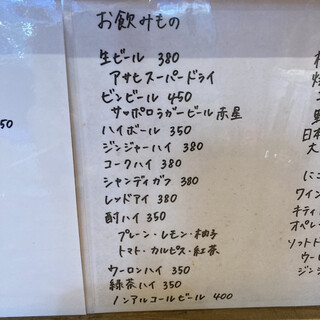 お飲みもの
生ビール 380
アサヒスーパードライ
ビンビール 450
サッポロラガービール赤星
ハイボール 350
ジンジャーハイ 380
コークハイ 380
シャンディガフ 380
レッドアイ 380
酎ハイ 350
プレーン・レモン・柚子
トマト・カルピス・紅茶
ウーロンハイ 350
緑茶ハイ 350
ノンアルコールビール 400
50
日本
大
にこ
ワイン
キティ
オペレー
ソフトド
ウーロ
ジンジ